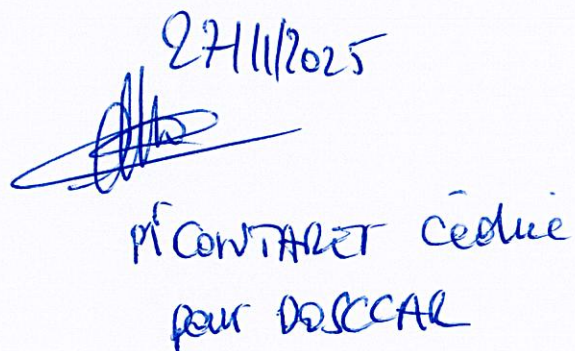 27/11/2025
Mr CONTARET Cédric
pour DOSCCAR